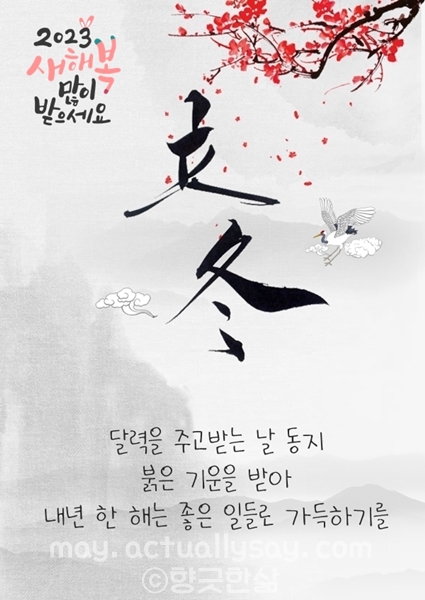 2023
새해복
많이
받으세요
立
冬
달력을 주고받는 날 동지
붉은 기운을 받아
내년 한 해는 좋은 일들로 가득하기를
may.actuallysay.com
©향긋한삶